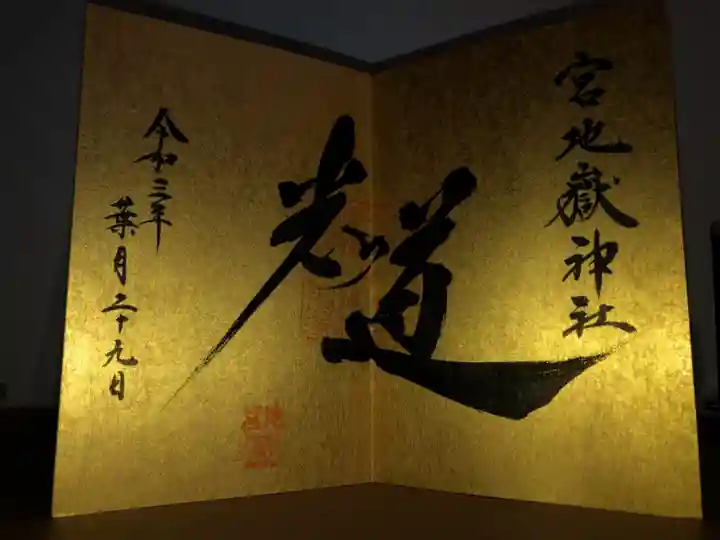 宮地嶽神社
光の道
令和三年
葉月二十九日